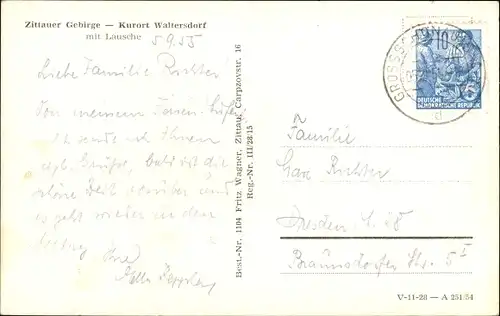 Zittauer Gebirge — Kurort Waltersdorf
mit Lausche
5.9.55
Liebe Familie Richter
Von meinem Ferien
sende ich Ihnen
Grüße, bald ist die
schöne Zeit vorüber und
es geht wieder in den
Ihre
Best.-Nr. 1104 Fritz Wagner, Zittau, Carpzovstr. 16
Reg.-Nr. III/28/15
GROSSSCH
10
DEUTSCHE
DEMOKRATISCHE REPUBLIK
d
Familie
Richter
Dresden A. 28
Braunsdorfer Str. 5 I
V-11-28 — A 251/54